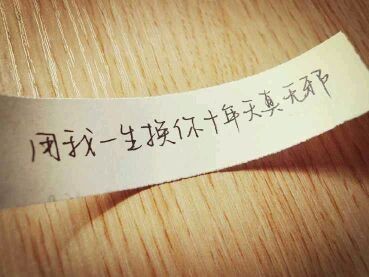 用我一生换你十年天真无邪